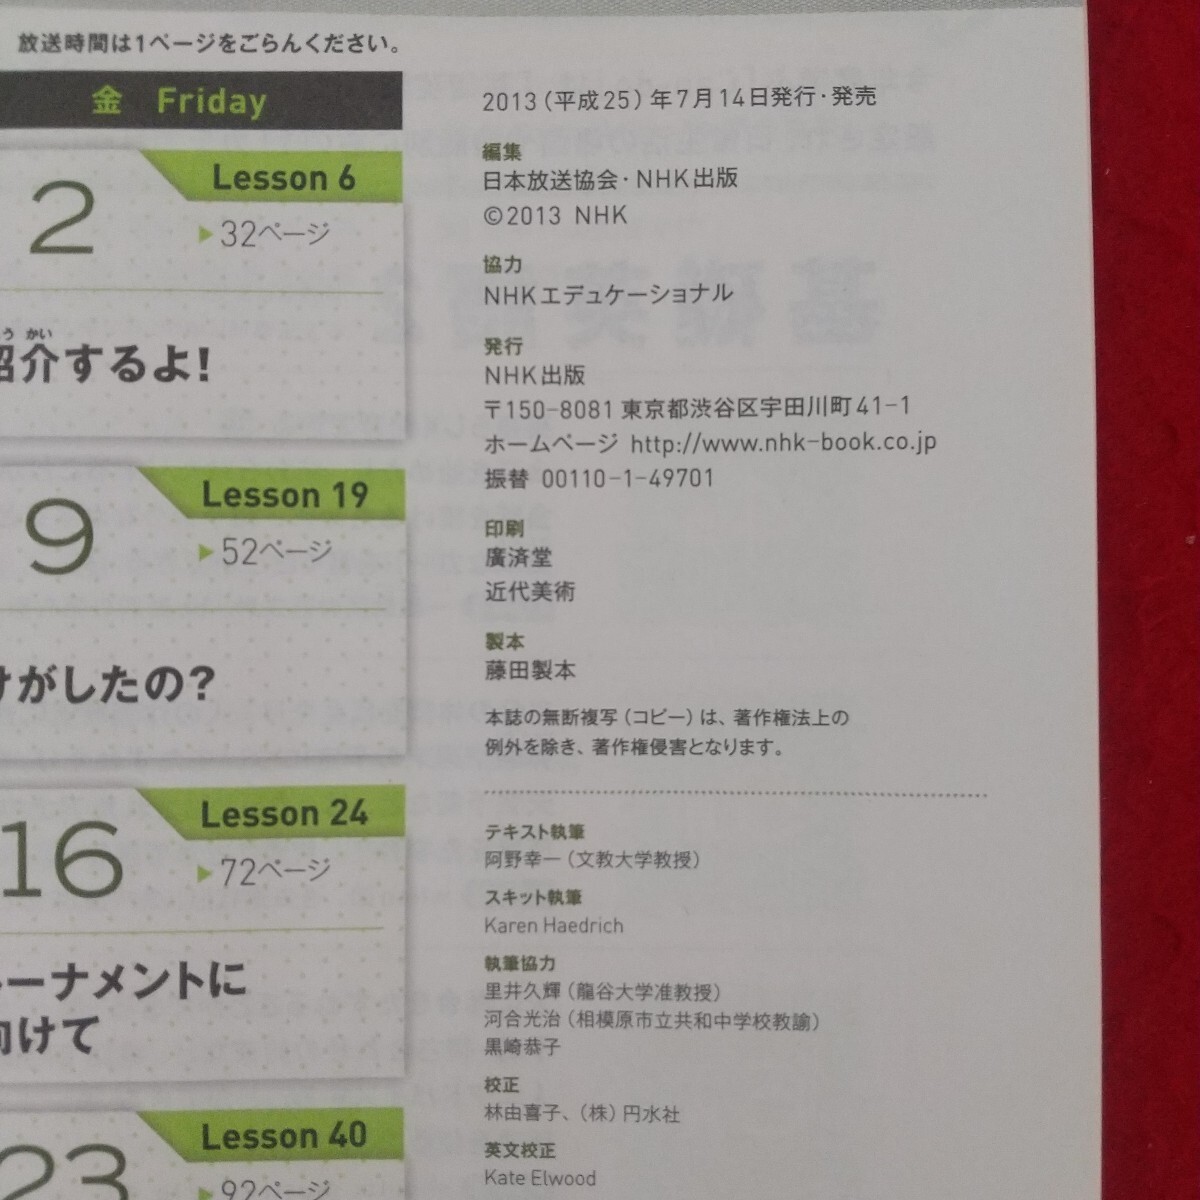 放送時間は1ページをごらんください。
金 Friday
2
Lesson 6
▶32ページ
介するよ!
かい
9
Lesson 19
▶52ページ
がしたの?
16
Lesson 24
▶72ページ
ーナメントに
けて
23
Lesson 40
▶92ページ
2013(平成25)年7月14日発行・発売
編集
日本放送協会・NHK出版
©2013 NHK
協力
NHKエデュケーショナル
発行
NHK出版
〒150-8081 東京都渋谷区宇田川町41-1
ホームページ http://www.nhk-book.co.jp
振替 00110-1-49701
印刷
廣済堂
近代美術
製本
藤田製本
本誌の無断複写(コピー)は、著作権法上の
例外を除き、著作権侵害となります。
テキスト執筆
阿野幸一(文教大学教授)
スキット執筆
Karen Haedrich
執筆協力
里井久輝(龍谷大学准教授)
河合光治(相模原市立共和中学校教諭)
黒崎恭子
校正
林由喜子、(株)円水社
英文校正
Kate Elwood